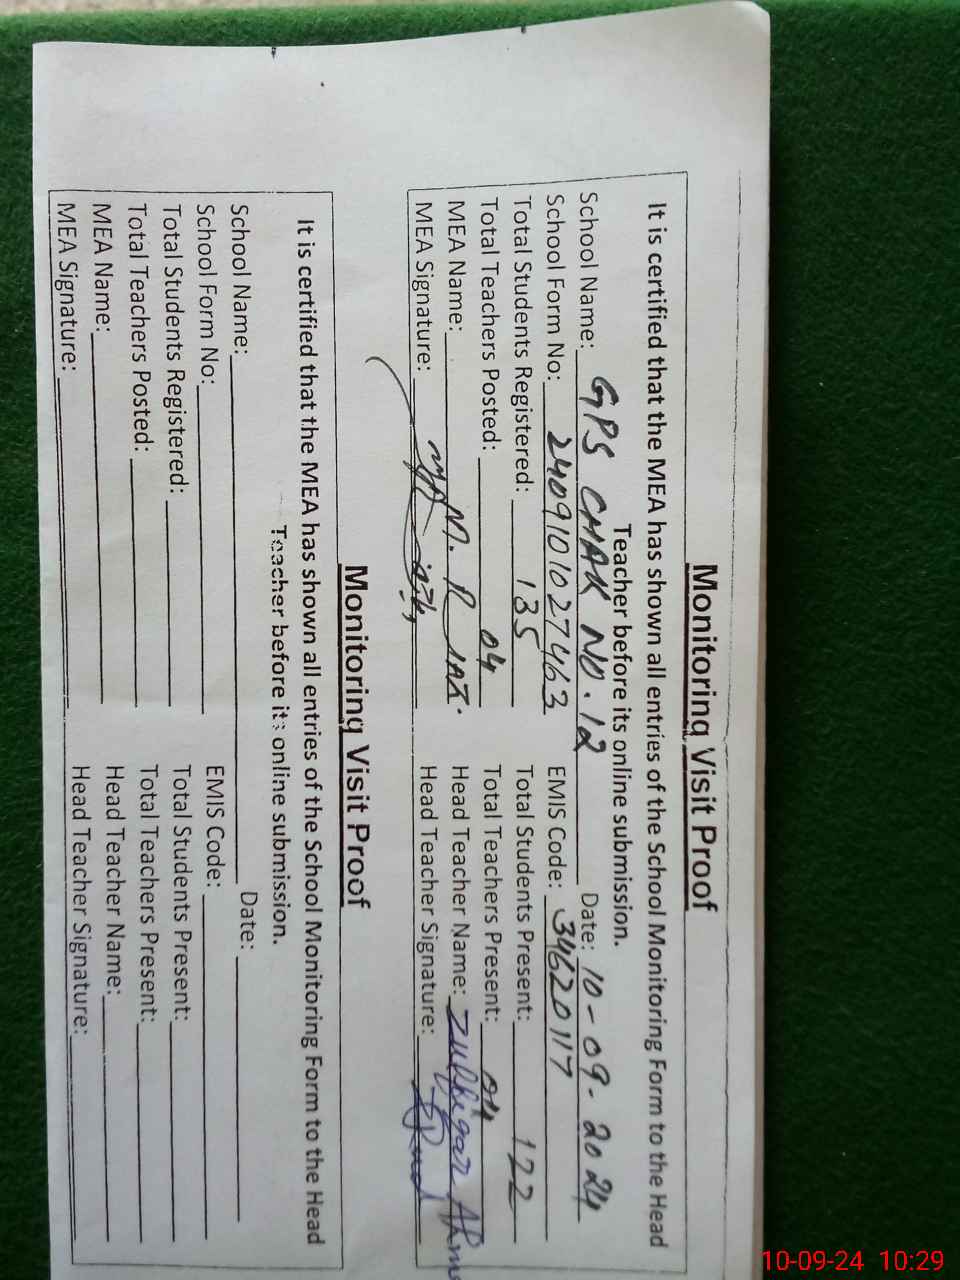 Monitoring Visit Proof
It is certified that the MEA has shown all entries of the School Monitoring Form to the Head
Teacher before its online submission.
School Name: GPS CHAK NO. 12 Date: 10-09-2024
School Form No: 2409101027463 EMIS Code: 34620117
Total Students Registered: 135 Total Students Present: 122
Total Teachers Posted: 04 Total Teachers Present: 04
MEA Name: M. R Head Teacher Name: Zulfiqar Ahm
MEA Signature: Head Teacher Signature:
Monitoring Visit Proof
It is certified that the MEA has shown all entries of the School Monitoring Form to the Head
Teacher before its online submission.
School Name: Date:
School Form No: EMIS Code:
Total Students Registered: Total Students Present:
Total Teachers Posted: Total Teachers Present:
MEA Name: Head Teacher Name:
MEA Signature: Head Teacher Signature:
10-09-24 10:29